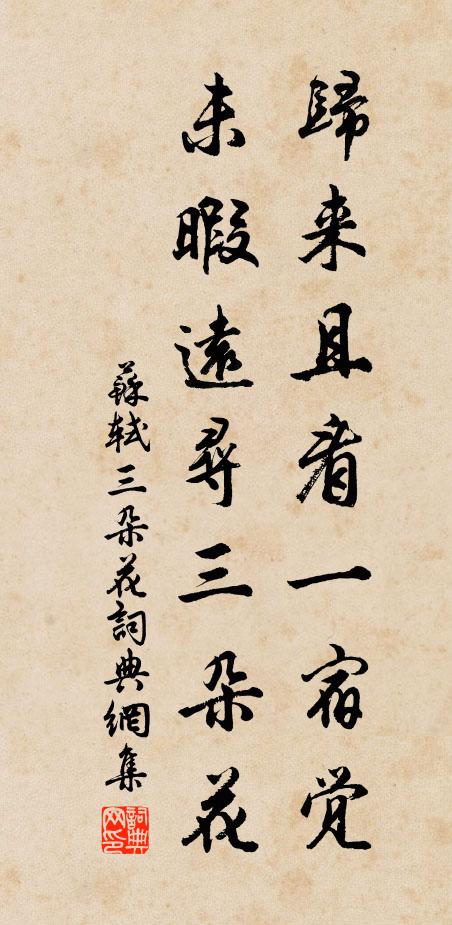 歸来且看一宿覺
未暇遠尋三朵花
蘇軾三朵花詞典網集
詞典网印